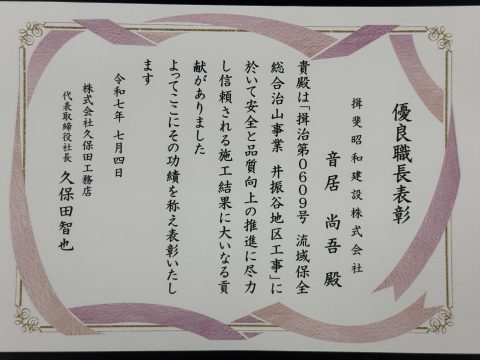 優良職長表彰
揖斐昭和建設株式会社
音居 尚吾 殿
貴殿は「揖治第0609号 流域保全
総合治山事業 井振谷地区工事」に
於いて安全と品質向上の推進に尽力
し信頼される施工結果に大いなる貢
献がありました
よってここにその功績を称え表彰いたし
ます
令和七年 七月四日
株式会社久保田工務店
代表取締役社長 久保田智也